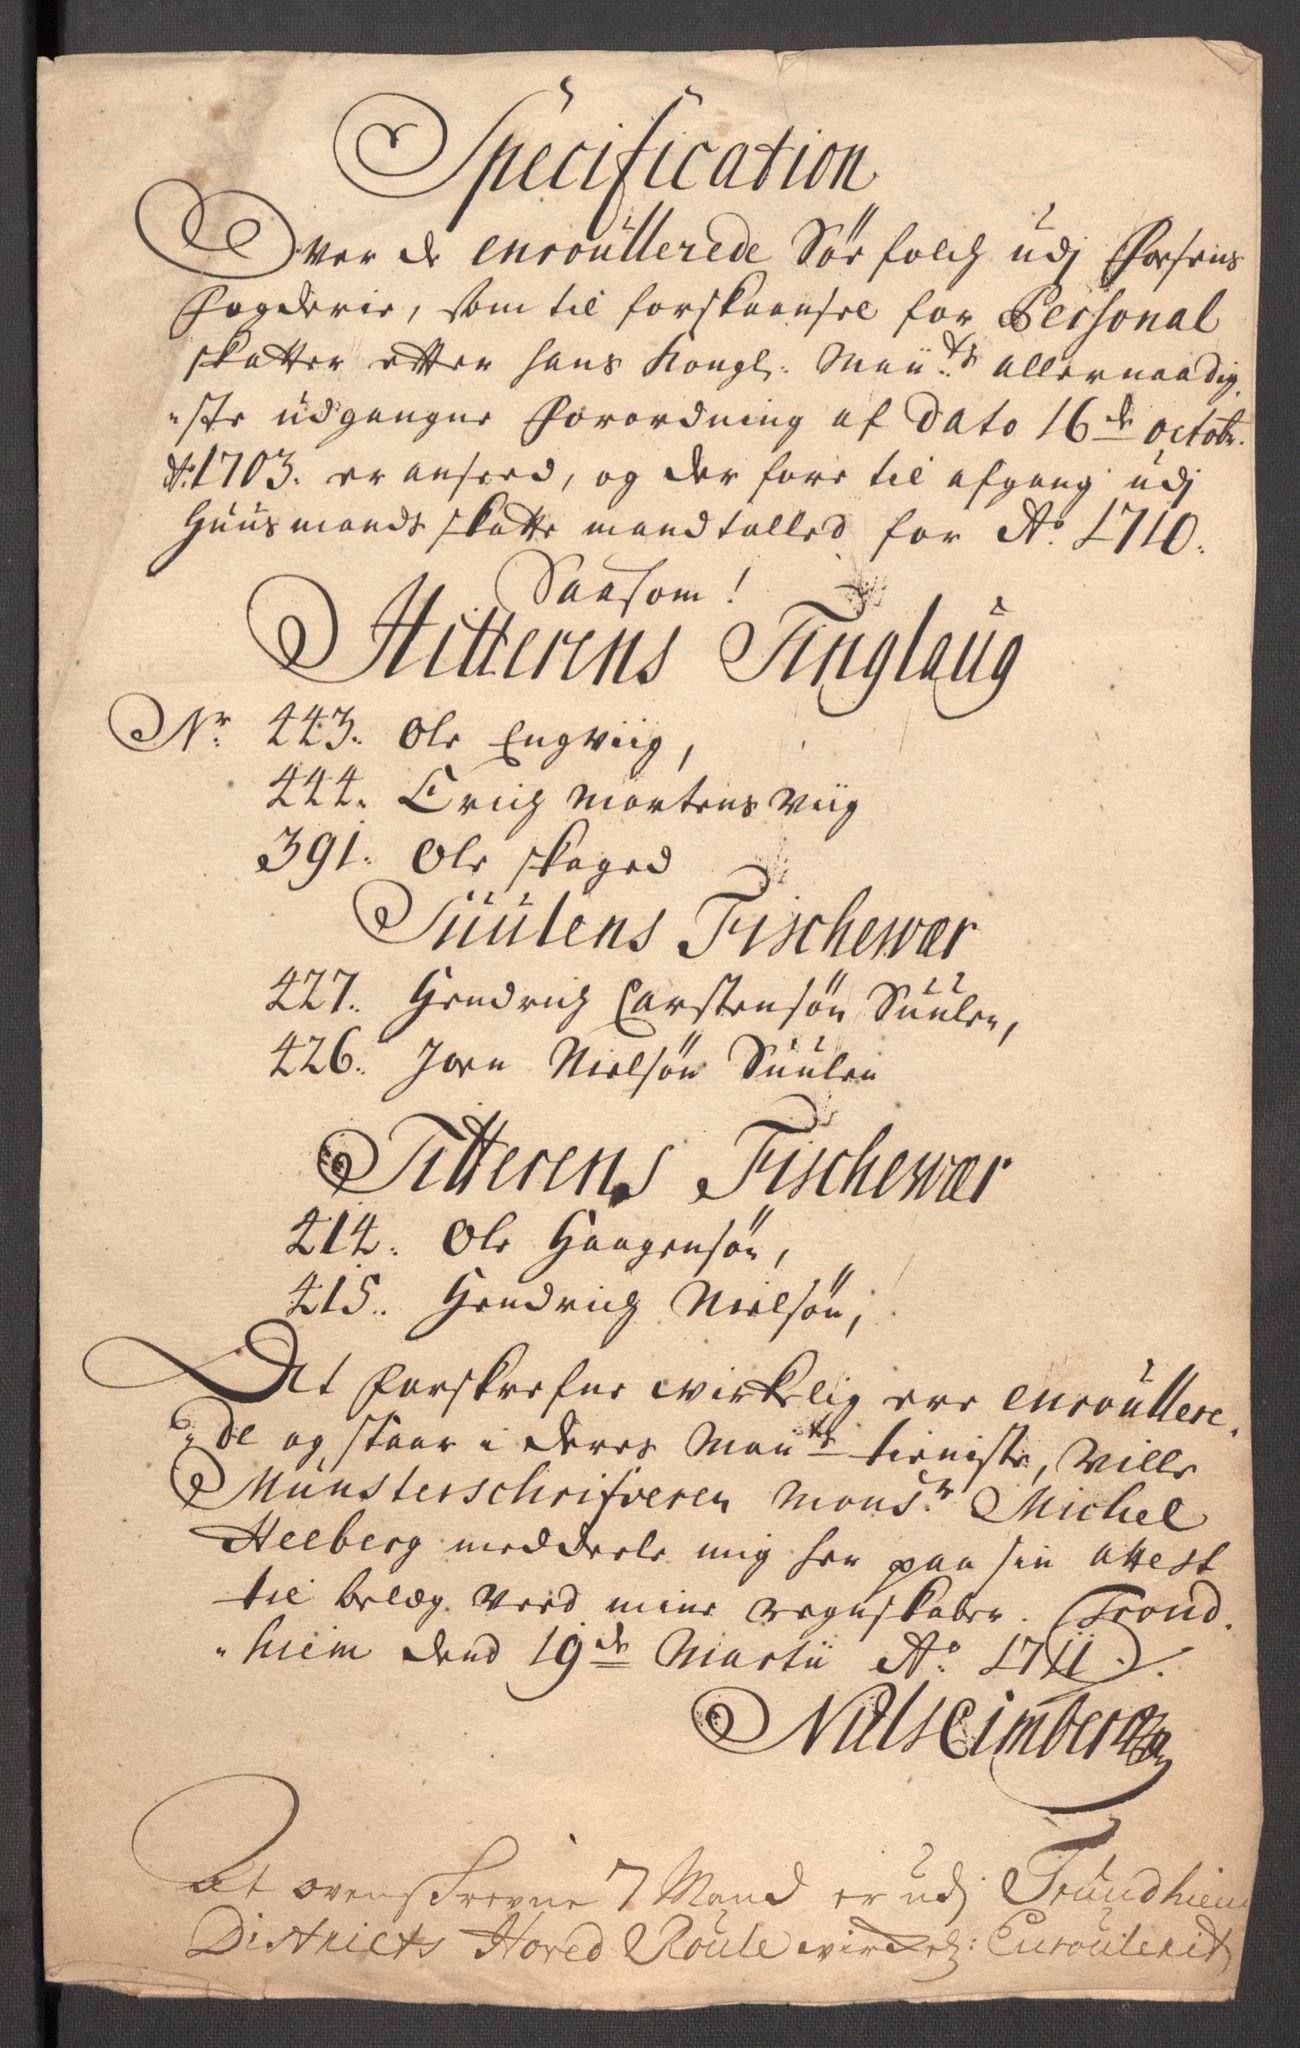 Specification
Over de enroullerede Söe folch udj Fosens
Fogderie, som til forskaansel for Personal
skatter efter hans Kongl: May:ts allernaadig
"ste udgangne Forordning af Dato 16de octobr:
Ao: 1703. er anseed, og der fore til afgang udj
Huusmands skatte mandtalled for Ao: 1710.
Saasom!
Hitterens Tinglaug
Nr: 443. Ole Engviig,
444. Erich Mortensviig
391. Ole Skaged
Suulens Fischewær
427. Hendrich Carstensön Suulen,
426. Jorn Nielsön Suulen
Titterens Fischewær
414. Ole Haagensön,
415. Hendrich Nielsön,
At forskrefne wirkelig ere enroullere,
"de og staar i deres Mayts tieniste, ville
Munsterschrifveren Monsr: Michel
Heeberg meddeele mig her paa sin attest
til belæg veed mine regnskaber. Trond,
"hiem dend 19de Martii Ao: 1711.
Niels Cimber
At ovenskrevne 7 Mand er udj Trundhiems
Districts Hoved Roule wirkel: Enroulerit